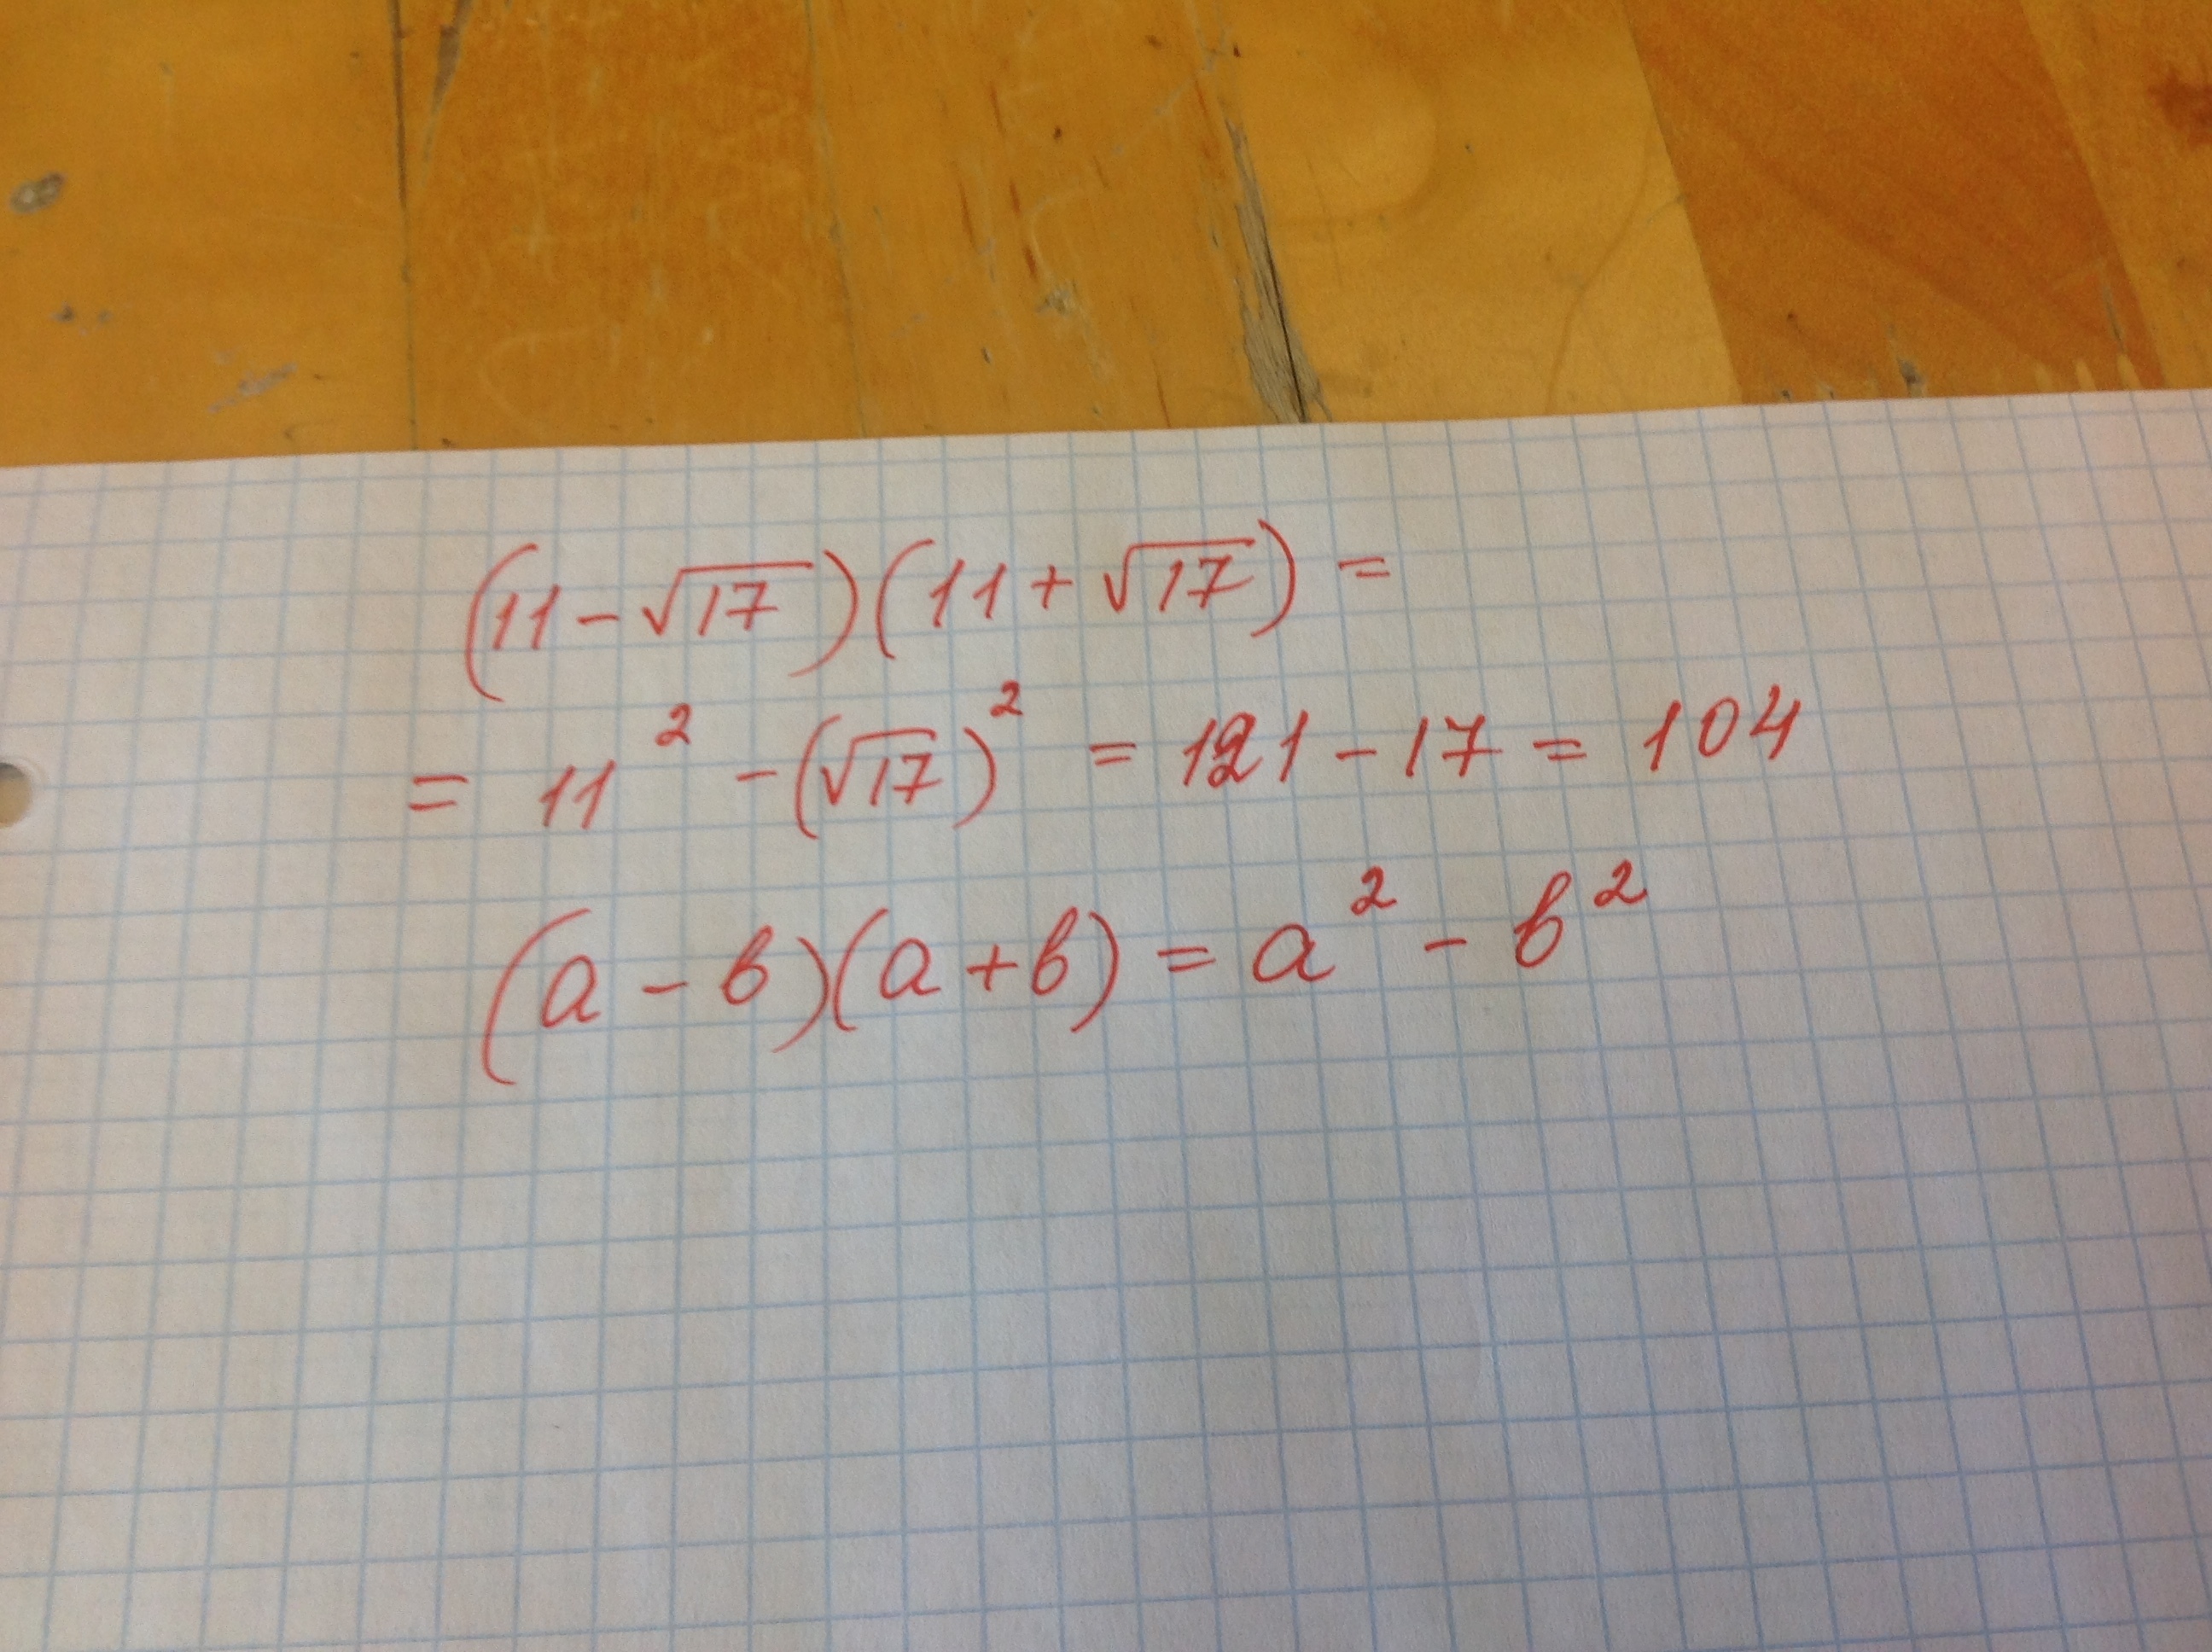 (11-√17)(11+√17)=
= 11² -(√17)² = 121-17= 104
(a-b)(a+b)=a²-b²